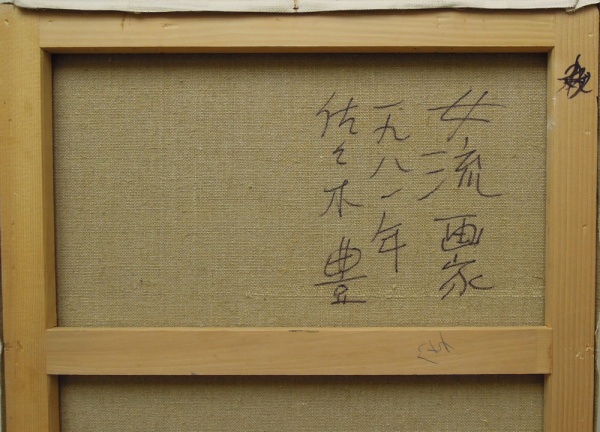 女流画家
一九八一年
佐々木豊